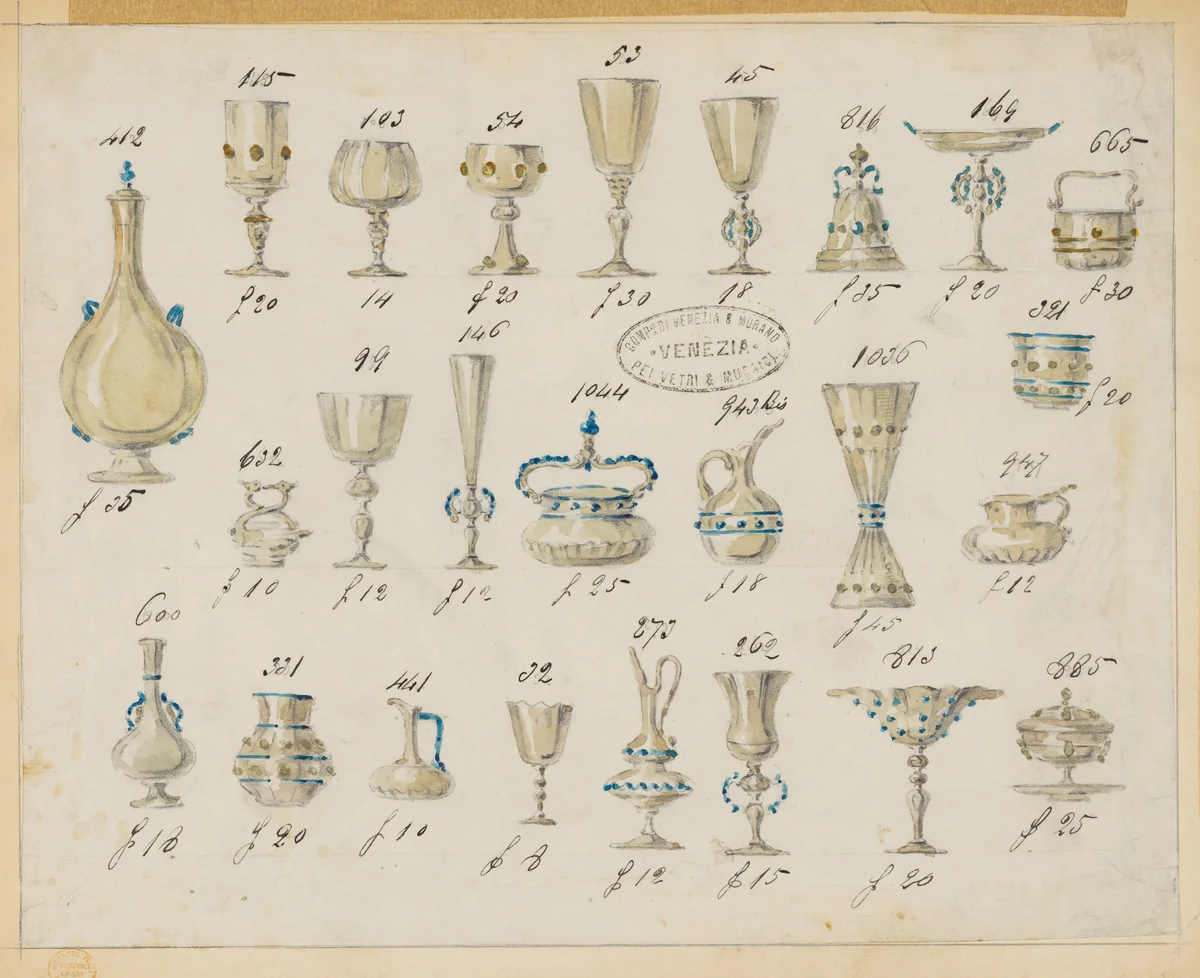 412
f 35
115
f 20
103
14
54
f 20
53
f 30
45
18
816
f 35
169
f 20
665
f 30
COMP. DI VENEZIA & MURANO
VENEZIA
PEI VETRI & MUSAICI
321
f 20
632
f 10
99
f 12
146
f 12
1044
f 25
943 Bis
f 18
1036
f 45
947
f 12
600
f 18
331
f 20
441
f 10
32
f 8
273
f 12
262
f 15
813
f 20
885
f 25